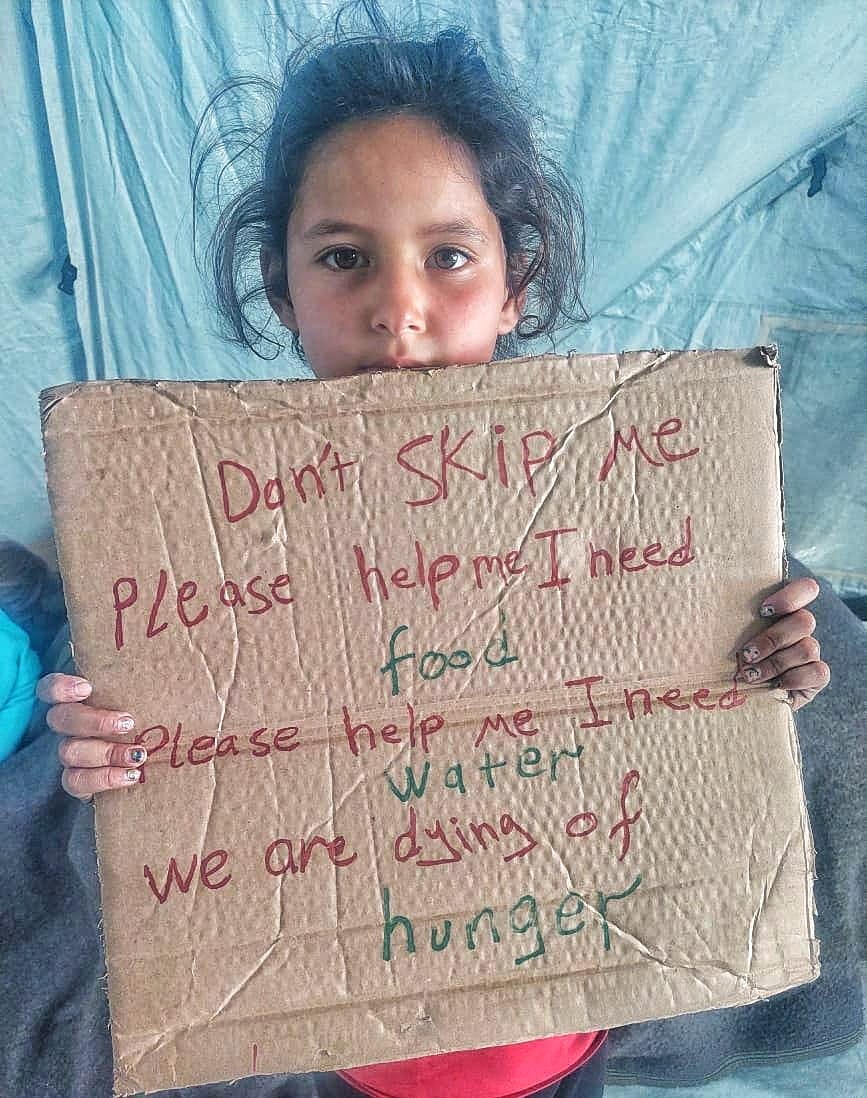 Don't SKip Me
Please help me I need
food
Please help me I need
Water
we are dying of
hunger